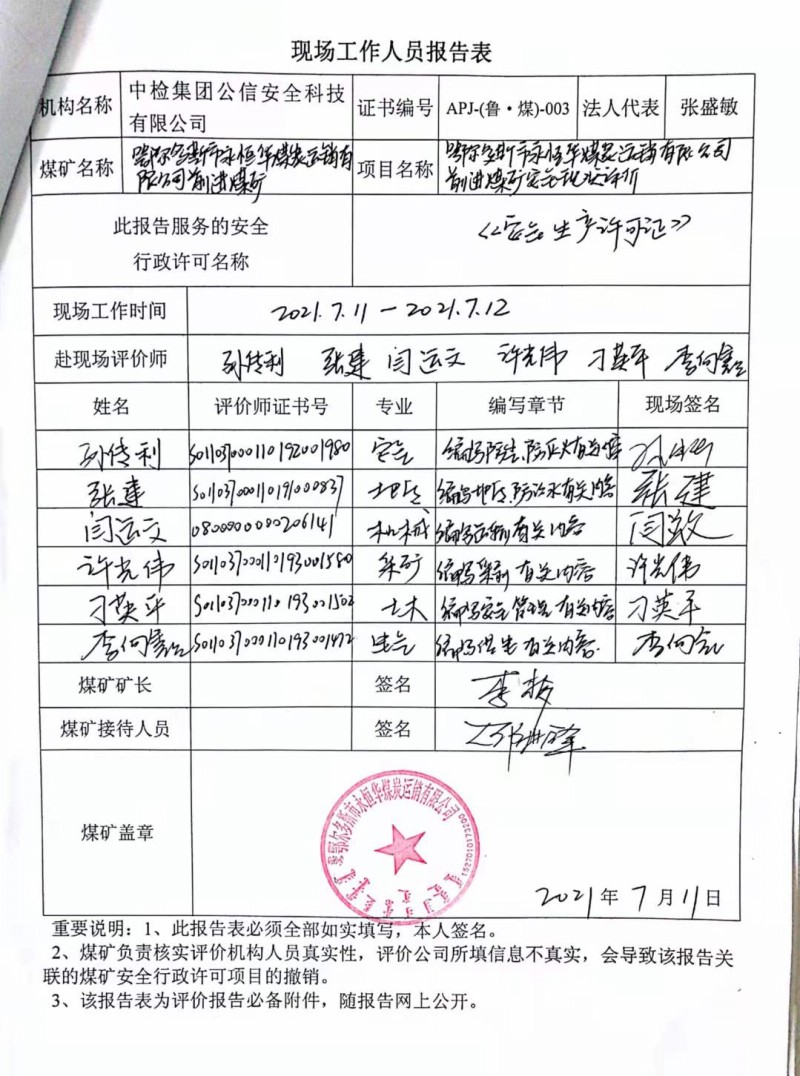 现场工作人员报告表
机构名称 中检集团公信安全科技有限公司 证书编号 APJ-(鲁·煤)-003 法人代表 张盛敏
煤矿名称 鄂尔多斯市永恒华煤炭运销有限公司前进煤矿 项目名称 鄂尔多斯市永恒华煤炭运销有限公司前进煤矿安全现状评价
此报告服务的安全
行政许可名称
《安全生产许可证》
现场工作时间 2021.7.11—2021.7.12
赴现场评价师 张建 闫运文 许光伟 刁英平
姓名 评价师证书号 专业 编写章节 现场签名
S011037000110192001980 安全
张建 S011037000110191000837 地质 编写地质、防治水有关内容 张建
闫运文 0800000000206141 机械 有关内容
许光伟 S011037000110193001580 采矿 有关内容 许光伟
刁英平 S011037000110193001502 土木 编写安全管理 有关内容 刁英平
S011037000110193001472 有关内容
煤矿矿长 签名
煤矿接待人员 签名
煤矿盖章
鄂尔多斯市永恒华煤炭运销有限公司
2021年7月11日
重要说明：1、此报告表必须全部如实填写，本人签名。
2、煤矿负责核实评价机构人员真实性，评价公司所填信息不真实，会导致该报告关
联的煤矿安全行政许可项目的撤销。
3、该报告表为评价报告必备附件，随报告网上公开。